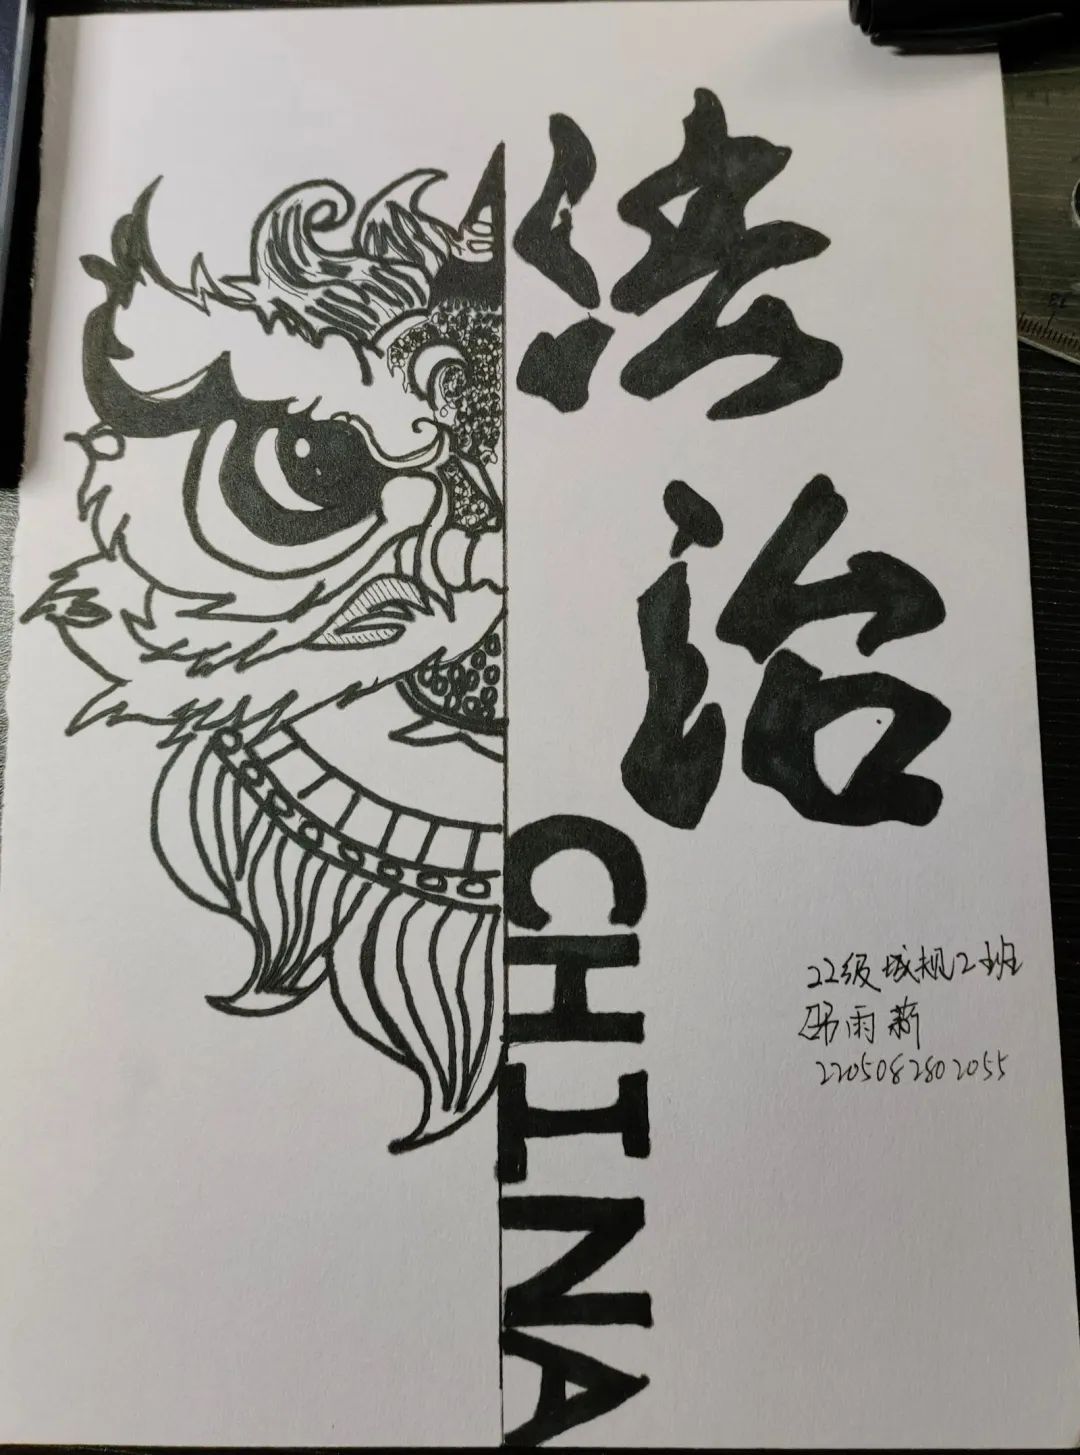 法治
CHINA
22级城规2班
邵雨薪
2205082802055